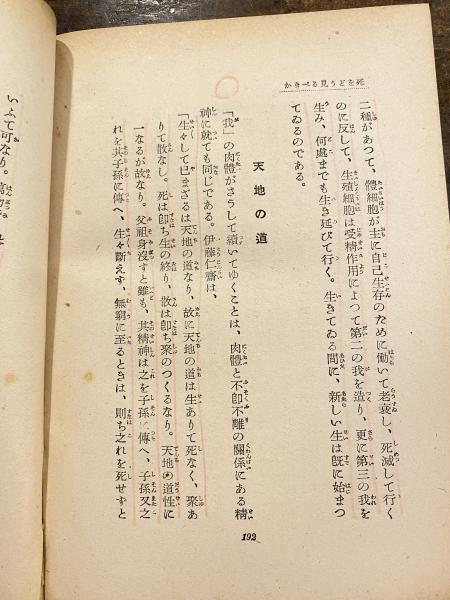 死をどう見るべきか
二種があつて、體細胞が主に自己生存のために働いて老衰し、死滅して行く
のに反して、生殖細胞は受精作用によつて第二の我を造り、更に第三の我を
生み、何處までも生き延びて行く。生きてゐる間に、新しい生は旣に始まつ
てゐるのである。
天地の道
「我」の肉體がさうして續いてゆくことは、肉體と不卽不離の關係にある精
神に就ても同じである。伊藤仁齋は、
「生々して已まざるは天地の道なり、故に天地の道は生ありて死なく、聚あ
りて散なし。死は卽ち生の終り、散は卽ち聚のつくるなり。天地の道性に
一なるが故なり。父祖身沒すと雖も、其精神は之を子孫に傳へ、子孫又之
れを其子孫に傳へ、生々斷えず、無窮に至るときは、則ち之れを死せずと
192
いふて可なり。